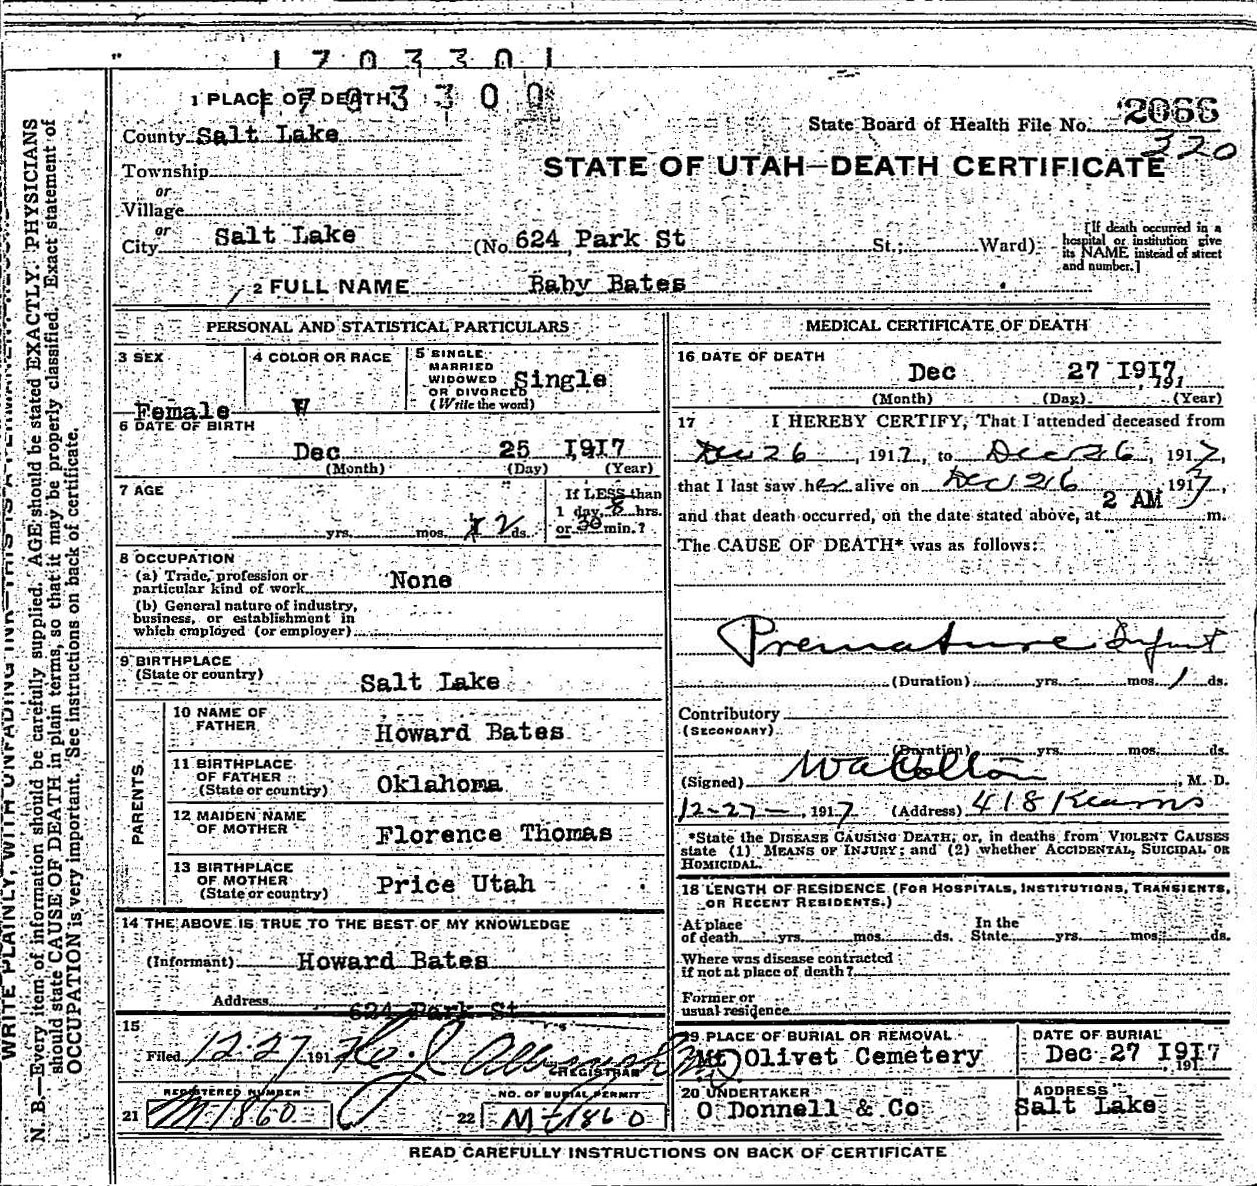 1703301
1703300
1 PLACE OF DEATH
State Board of Health File No. 2066
320
County Salt Lake
STATE OF UTAH—DEATH CERTIFICATE
Township
or
Village
or
City Salt Lake (No. 624 Park St St.; Ward)
[If death occurred in a hospital or institution give its NAME instead of street and number.]
2 FULL NAME Baby Bates
PERSONAL AND STATISTICAL PARTICULARS
3 SEX Female
4 COLOR OR RACE W
5 SINGLE, MARRIED WIDOWED OR DIVORCED (Write the word) Single
6 DATE OF BIRTH
Dec 25 1917
(Month) (Day) (Year)
7 AGE
yrs. mos. 2 ds.
If LESS than
1 day, 8 hrs.
or 30 min.?
8 OCCUPATION
(a) Trade, profession or
particular kind of work None
(b) General nature of industry,
business, or establishment in
which employed (or employer)
9 BIRTHPLACE
(State or country) Salt Lake
PARENTS
10 NAME OF FATHER Howard Bates
11 BIRTHPLACE OF FATHER (State or country) Oklahoma
12 MAIDEN NAME OF MOTHER Florence Thomas
13 BIRTHPLACE OF MOTHER (State or country) Price Utah
14 THE ABOVE IS TRUE TO THE BEST OF MY KNOWLEDGE
(Informant) Howard Bates
Address 624 Park St
15
Filed 12-27 191
REGISTRAR
REGISTERED NUMBER
21 M-1860
NO. OF BURIAL PERMIT
22 M-1860
MEDICAL CERTIFICATE OF DEATH
16 DATE OF DEATH
Dec 27 1917, 191
(Month) (Day) (Year)
17 I HEREBY CERTIFY, That I attended deceased from
Dec 26, 1917, to Dec 26, 1917,
that I last saw her alive on Dec 26, 1917,
and that death occurred, on the date stated above, at 2 AM m.
The CAUSE OF DEATH* was as follows:
Premature Infant
(Duration) yrs. mos. 1 ds.
Contributory
(SECONDARY)
(Duration) yrs. mos. ds.
(Signed) M. D.
12-27-, 1917 (Address) 418 Kearns
*State the DISEASE CAUSING DEATH, or, in deaths from VIOLENT CAUSES
state (1) MEANS OF INJURY; and (2) whether ACCIDENTAL, SUICIDAL OR
HOMICIDAL.
18 LENGTH OF RESIDENCE (FOR HOSPITALS, INSTITUTIONS, TRANSIENTS,
OR RECENT RESIDENTS.)
At place of death yrs. mos. ds. In the State yrs. mos. ds.
Where was disease contracted
if not at place of death?
Former or
usual residence
19 PLACE OF BURIAL OR REMOVAL
Mt Olivet Cemetery
DATE OF BURIAL
Dec 27 1917, 191
20 UNDERTAKER
O Donnell & Co
ADDRESS
Salt Lake
READ CAREFULLY INSTRUCTIONS ON BACK OF CERTIFICATE
WRITE PLAINLY, WITH UNFADING INK—THIS IS A PERMANENT
N. B.—Every item of information should be carefully supplied. AGE should be stated EXACTLY. PHYSICIANS
should state CAUSE OF DEATH in plain terms, so that it may be properly classified. Exact statement of
OCCUPATION is very important. See instructions on back of certificate.